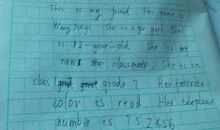 This is my friend Her name is
Wang. She is a girl She
is 12-year-old She is my
new classmate. She is in
class grade 7 Her favorite
color is read Her telephone
number is 752458